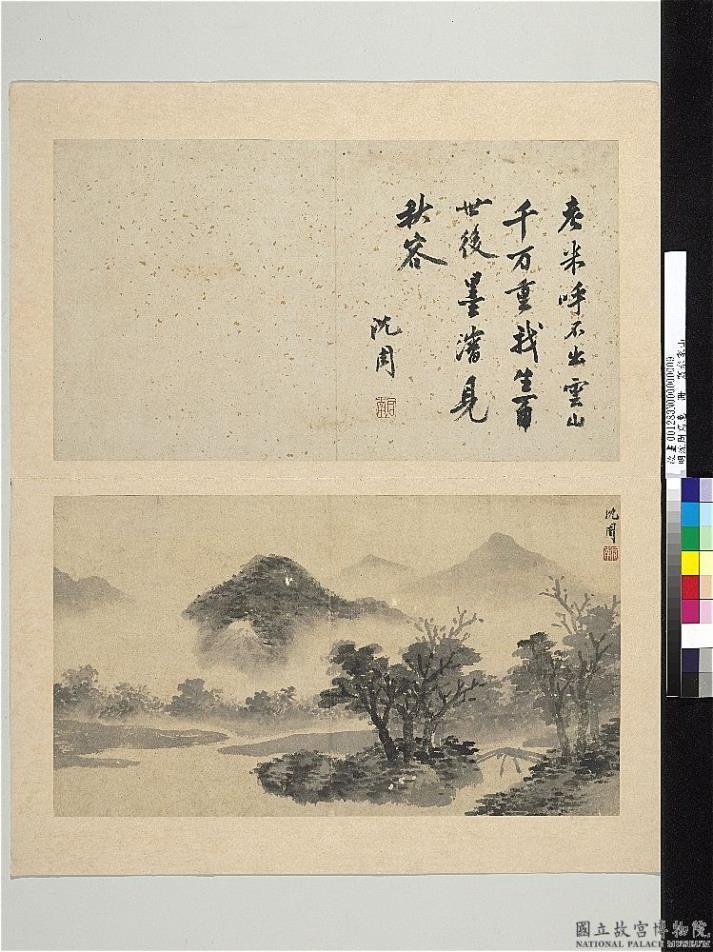 老米呼不出雲山
千万重我生百
世後墨瀋見
秋容
沈周
沈周
國立故宮博物院
NATIONAL PALACE MUSEUM